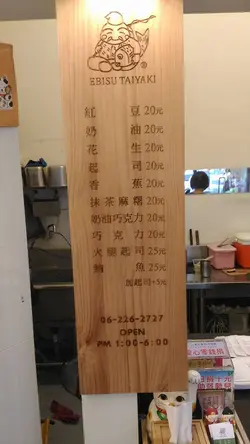 EBISU TAIYAKI
紅豆 20元
奶油 20元
花生 20元
起司 20元
香蕉 20元
抹茶麻糬 20元
奶油巧克力 20元
巧克力 20元
火腿起司 25元
鮪魚 25元
加起司+5元
06-226-2727
OPEN
PM 1:00-6:00
愛心零錢捐